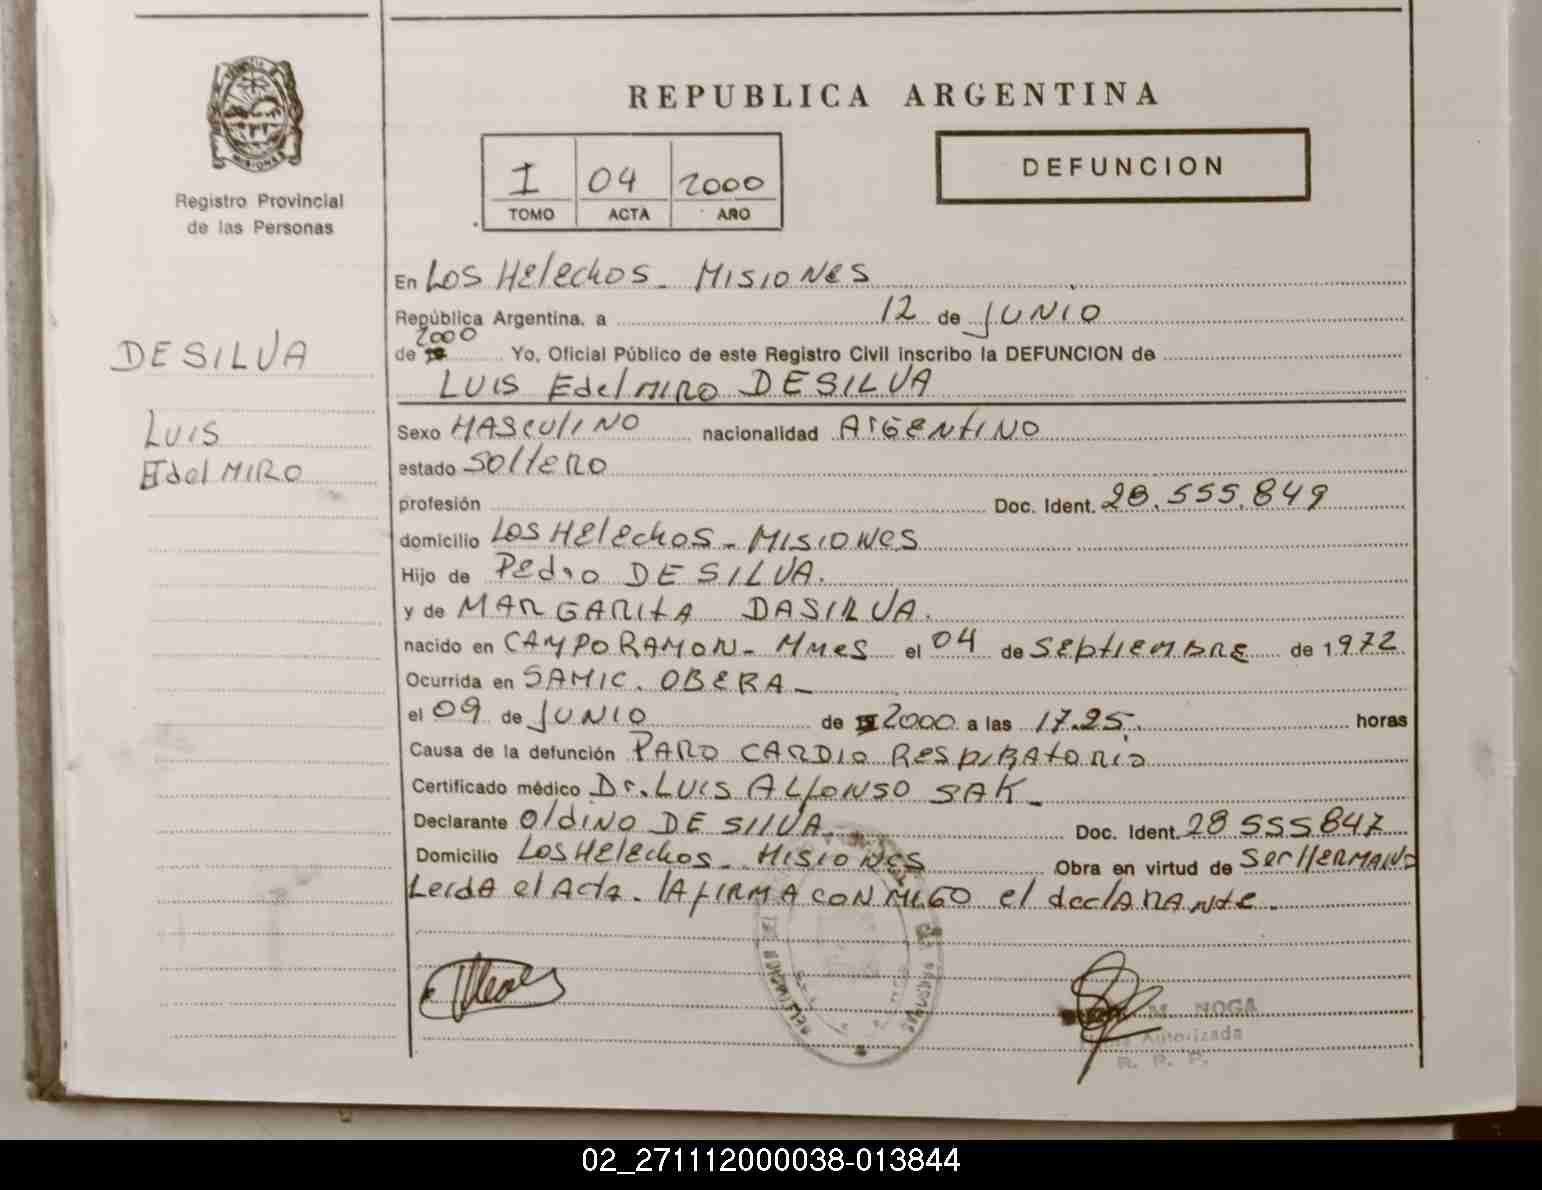 REPUBLICA ARGENTINA
MISIONES
Registro Provincial
de las Personas
I 04 2000
TOMO ACTA AÑO
DEFUNCION
En Los Helechos - Misiones
República Argentina, a 12 de Junio
2000
de Yo, Oficial Público de este Registro Civil inscribo la DEFUNCION de
Luis Edelmiro DE SILVA
DE SILVA
Luis
Edelmiro
Sexo Masculino nacionalidad Argentino
estado Soltero
profesión Doc. Ident. 28.555.849
domicilio Los Helechos - Misiones
Hijo de Pedro DE SILVA.
y de Margarita DASILVA.
nacido en Campo Ramon - Mnes el 04 de Septiembre de 1972
Ocurrida en SAMIC. OBERA -
el 09 de Junio de 2000 a las 17.25. horas
Causa de la defunción Paro Cardio Respiratorio
Certificado médico Dr. Luis Alfonso SAK -
Declarante Oldino DE SILVA. Doc. Ident. 28 555 847
Domicilio Los Helechos - Misiones Obra en virtud de Ser Hermano
Leida el Acta. la firma conmigo el declarante.
M. NOGA
Autorizada
R. P. P.
02_271112000038-013844